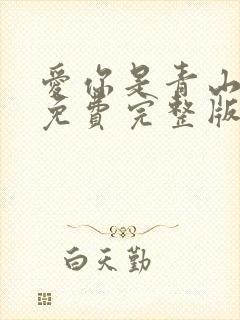 爱你是青山
免费完整版
白天勤